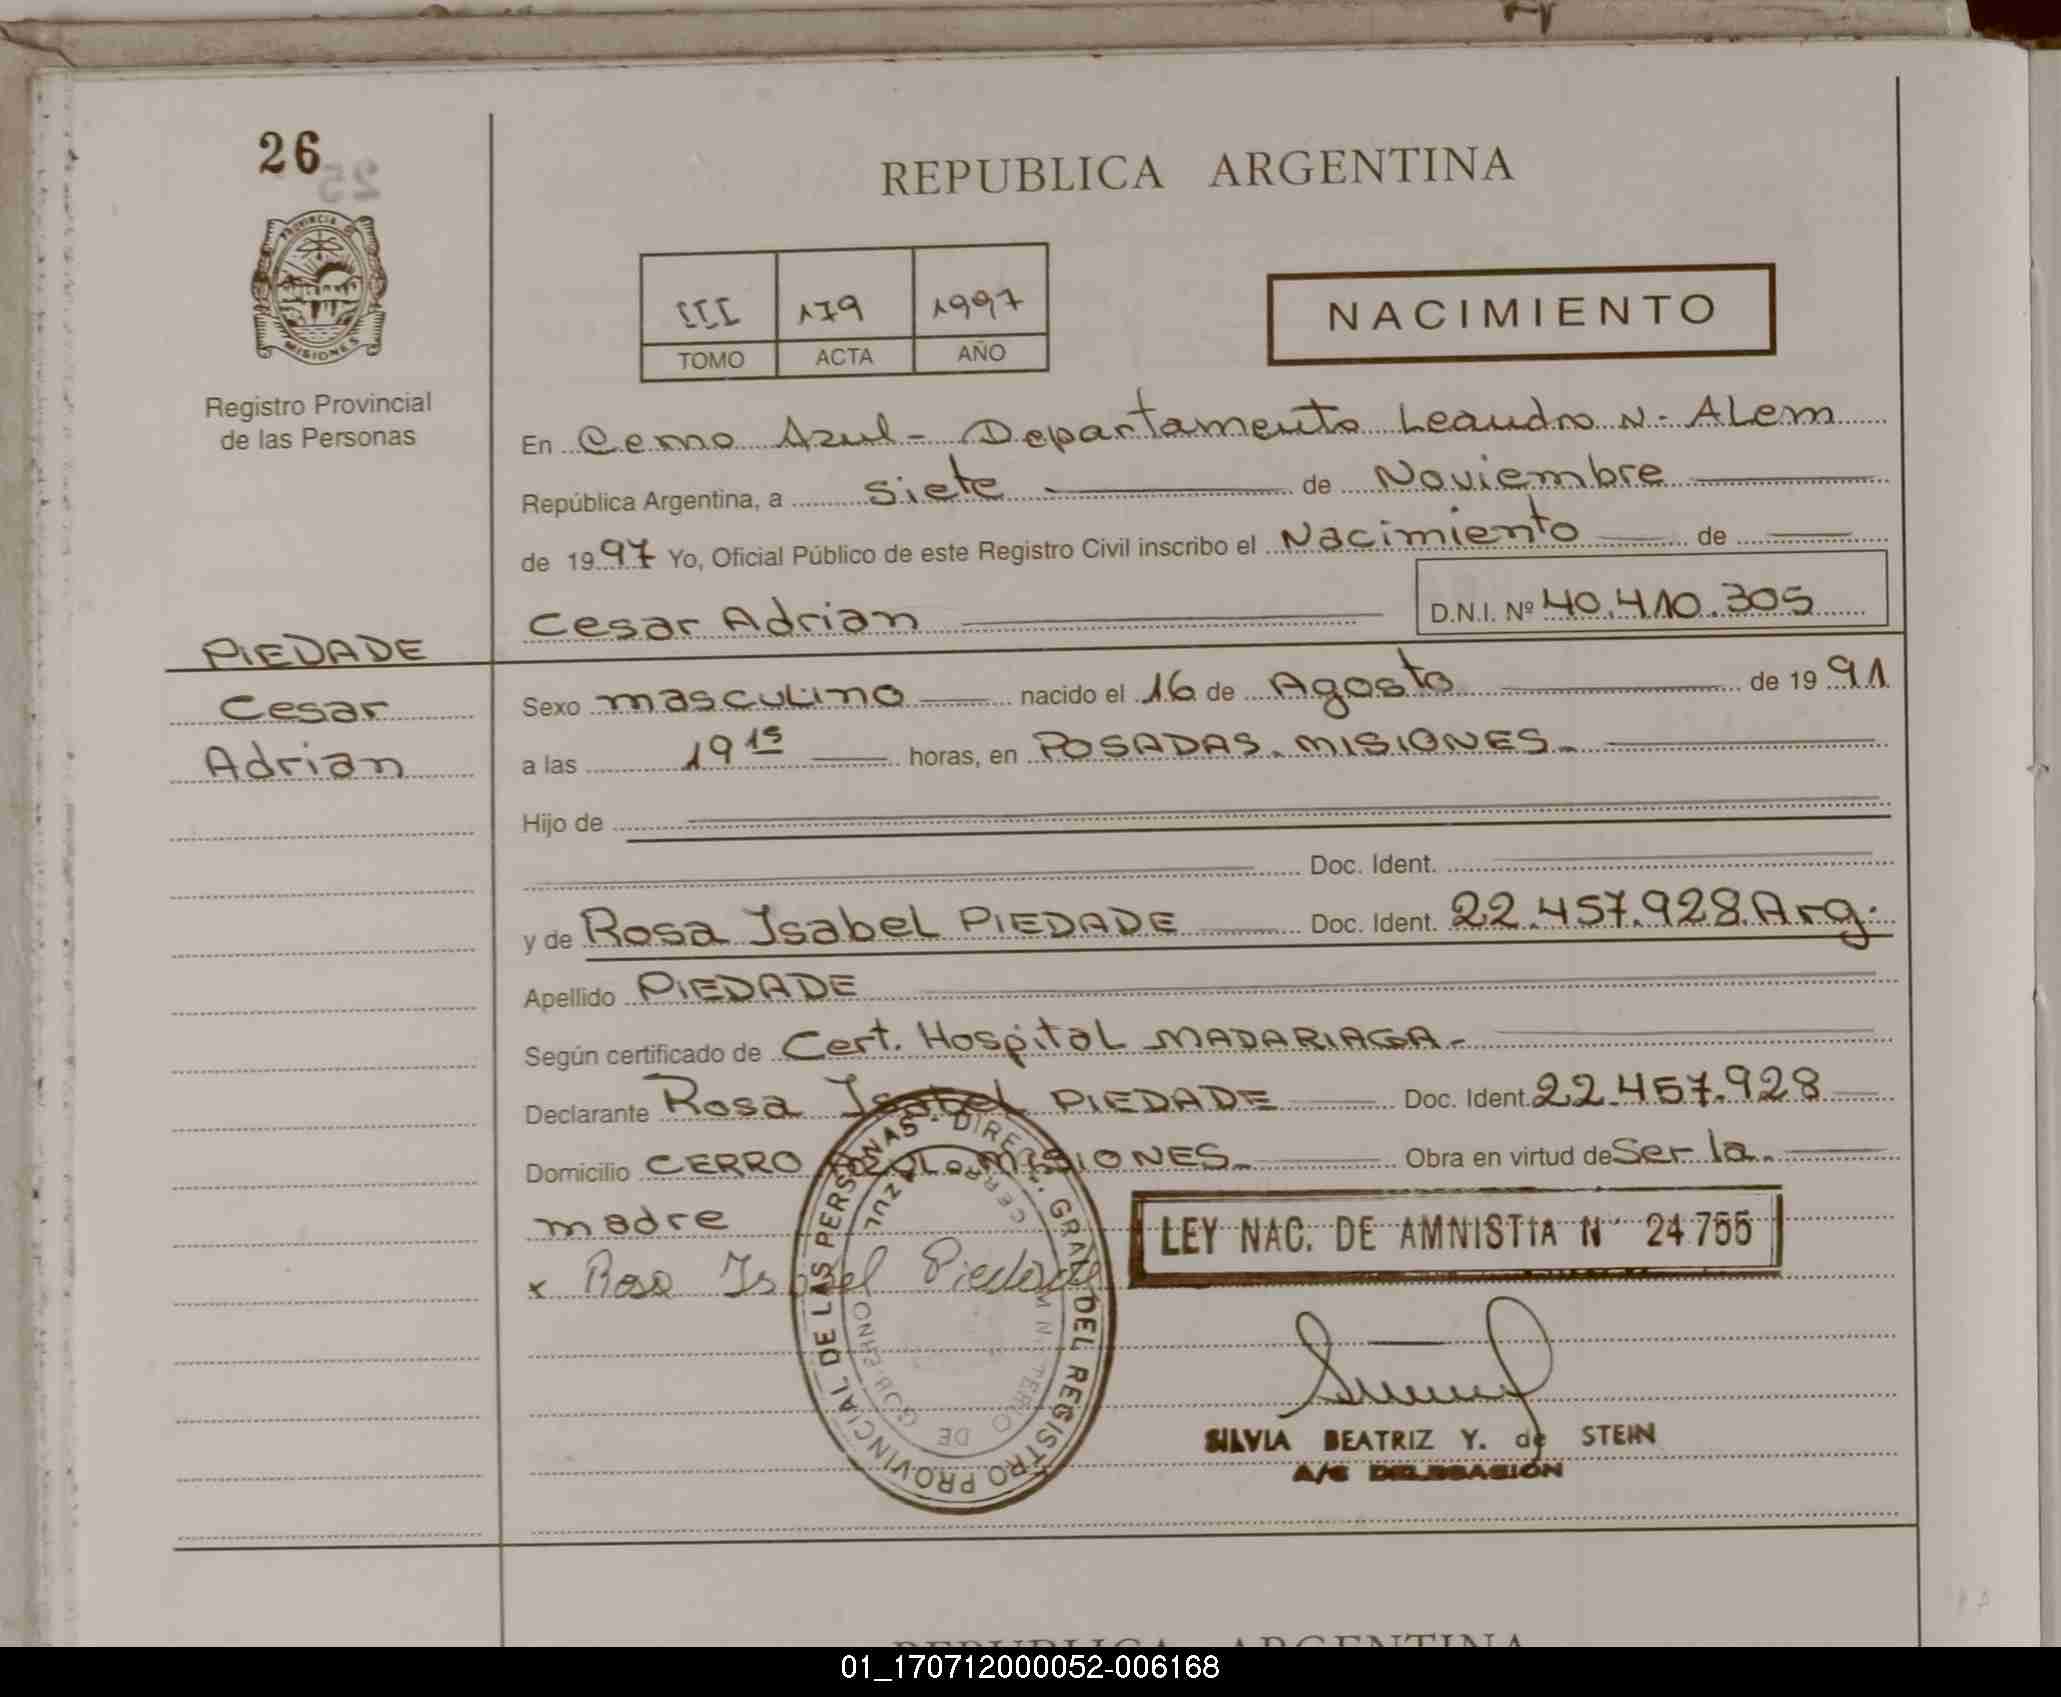 26
25
REPUBLICA ARGENTINA
PROVINCIA DE
MISIONES
Registro Provincial
de las Personas
III 179 1997
TOMO ACTA AÑO
NACIMIENTO
En Cerro Azul - Departamento Leandro N. ALem
República Argentina, a siete de Noviembre
de 1997 Yo, Oficial Público de este Registro Civil inscribo el Nacimiento de
Cesar Adrian D.N.I. Nº 40.410.305
PIEDADE
Cesar
Adrian
Sexo masculino nacido el 16 de Agosto de 1991
a las 19 15 horas, en POSADAS - MISIONES -
Hijo de
Doc. Ident.
y de Rosa Isabel PIEDADE Doc. Ident. 22.457.928 Arg.
Apellido PIEDADE
Según certificado de Cert. Hospital MADARIAGA -
Declarante Rosa Isabel PIEDADE Doc. Ident. 22.457.928
Domicilio CERRO AZUL - MISIONES - Obra en virtud de Ser la
madre
LEY NAC. DE AMNISTIA Nº 24.755
x Rosa Isabel Piedade
REGISTRO PROVINCIAL DE LAS PERSONAS - DIREC. GRAL. DEL
CERRO AZUL
MINISTERIO DE GOBIERNO
SILVIA BEATRIZ Y. de STEIN
A/C DELEGACION
REPUBLICA ARGENTINA
01_170712000052-006168